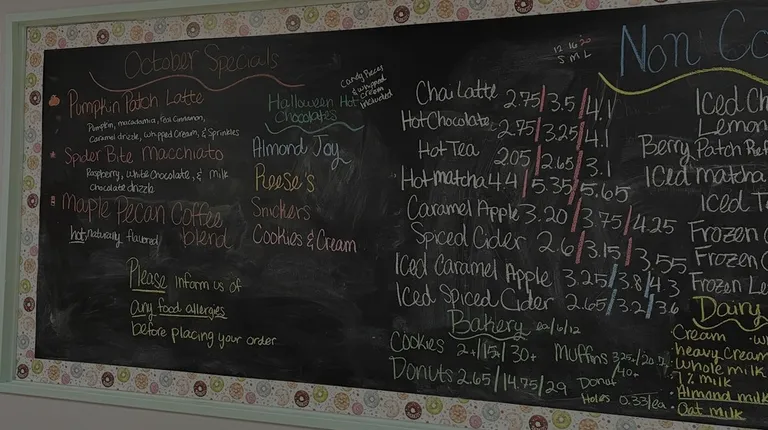 October Specials
Pumpkin Patch Latte
Pumpkin, macadamia, Tea Cinnamon,
Caramel drizzle, Whipped Cream, & Sprinkles
Spider Bite Macchiato
Raspberry, White Chocolate, & Milk
Chocolate drizzle
Maple Pecan Coffee
hot, naturally flavored blend
Please inform us of
any food allergies
before placing your order
Candy Pieces
& whipped
cream
included
Halloween Hot
Chocolates
Almond Joy
Reese's
Snickers
Cookies & Cream
12 16 20
S M L
Chai Latte 2.75/3.5/4.1
Hot Chocolate 2.75/3.25/4.1
Hot Tea 2.05/2.65/3.1
Hot matcha 4.4/5.35/5.65
Caramel Apple 3.20/3.75/4.25
Spiced Cider 2.6/3.15/3.55
Iced Caramel Apple 3.25/3.8/4.3
Iced Spiced Cider 2.65/3.2/3.6
Bakery ea/6/12
Cookies 2+/15+/30+
Donuts 2.65/14.75/29
Muffins
Donut
Holes 0.33/ea
Non Co
Iced Ch
Lemon
Berry Patch Ref
Iced matcha
Iced T
Frozen
Frozen
Frozen Le
Dairy
Cream
heavy cream
Whole milk
1% milk
Almond milk
Oat milk